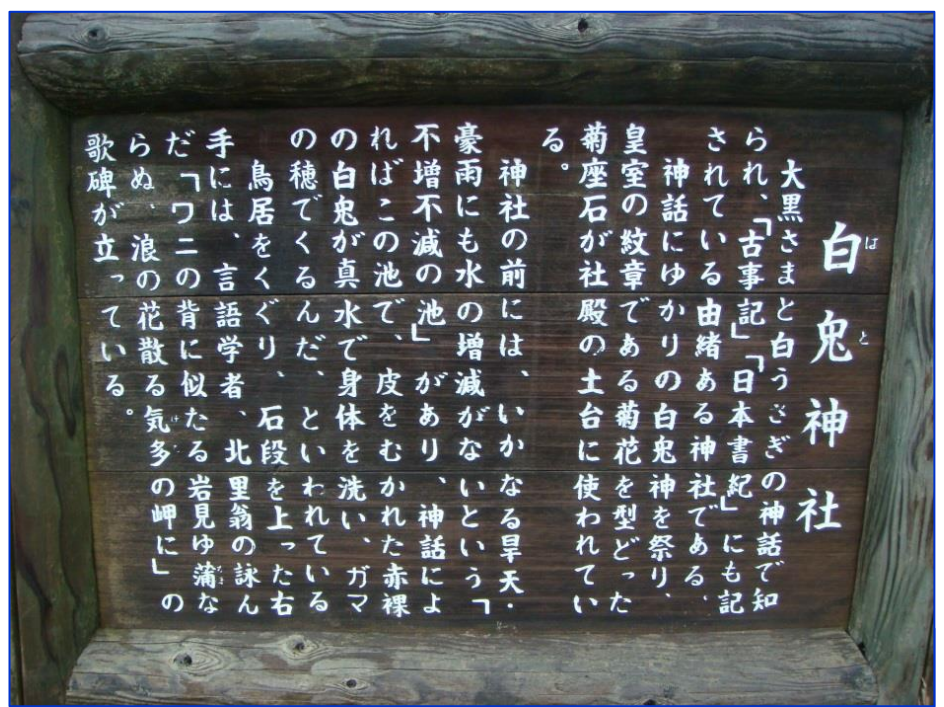 白兎神社
は と
大黒さまと白うさぎの神話で知
られ、「古事記」「日本書紀」にも記
されている由緒ある神社である、
神話にゆかりの白兎神を祭り、
皇室の紋章である菊花を型どった
菊座石が社殿の土台に使われてい
る。
神社の前には、いかなる旱天・
豪雨にも水の増減がないという「
不増不減の池」があり、神話によ
ればこの池で、皮をむかれた赤裸
の白兎が真水で身体を洗い、ガマ
の穂でくるんだ、といわれている
鳥居をくぐり、石段を上った右
手には、言語学者、北里翁の詠ん
だ「ワニの背に似たる岩見ゆ蒲な
らぬ、浪の花散る気多の岬に」の
歌碑が立っている。